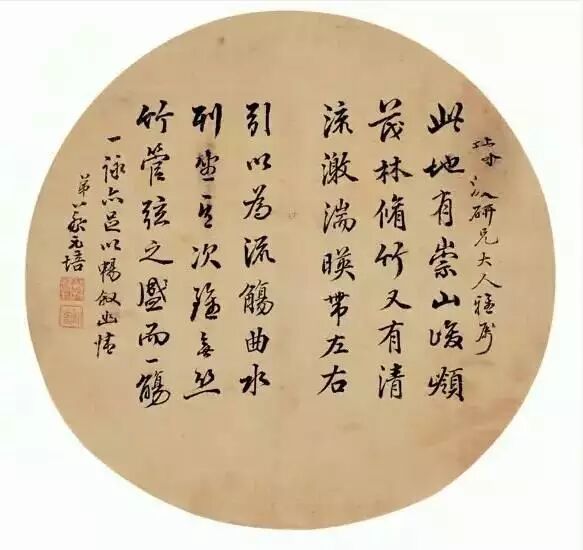 研兄大人雅屬
此地有崇山峻領
茂林脩竹又有清
流激湍暎帶左右
引以為流觴曲水
列坐其次雖無絲
竹管弦之盛而一觴
一詠亦足以暢敘幽情
弟蔡元培